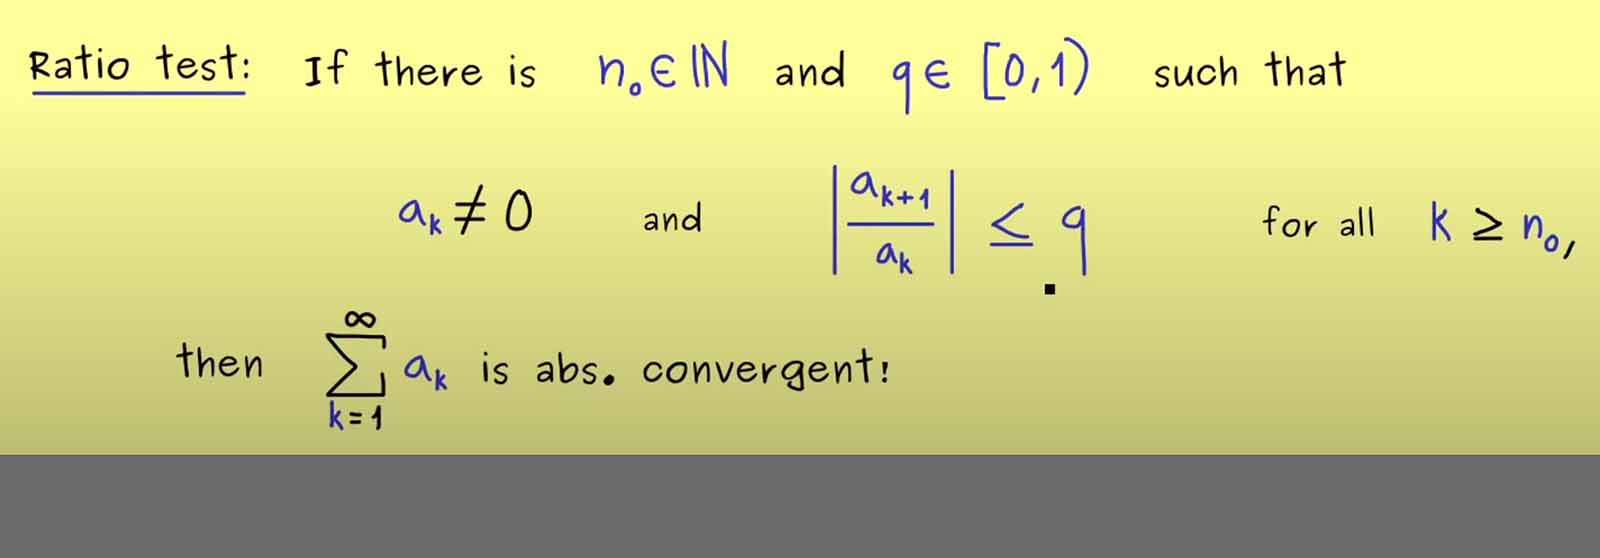 Ratio test: If there is n₀ ∈ ℕ and q ∈ [0,1) such that
aₖ ≠ 0 and |aₖ₊₁/aₖ| ≤ q for all k ≥ n₀,
then ∑_{k=1}^{∞} aₖ is abs. convergent!